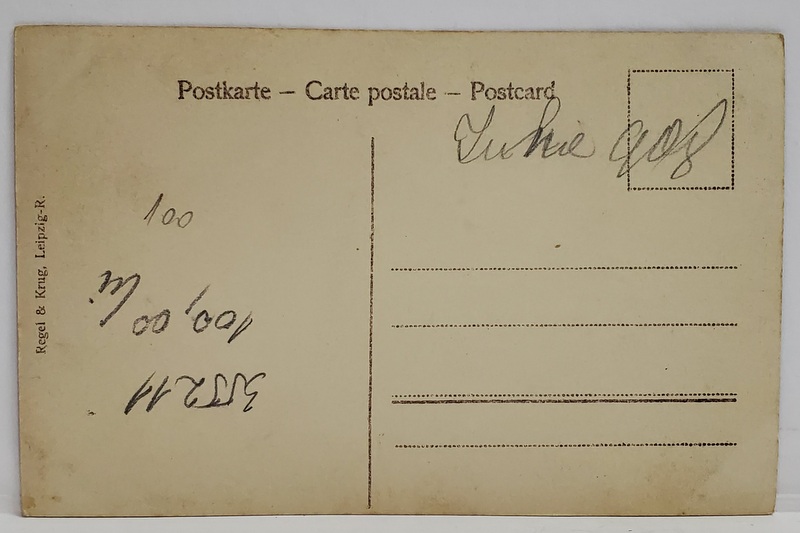 Postkarte – Carte postale – Postcard
Iunie 908
100
100,00 lei
355211
Regel & Krug, Leipzig-R.